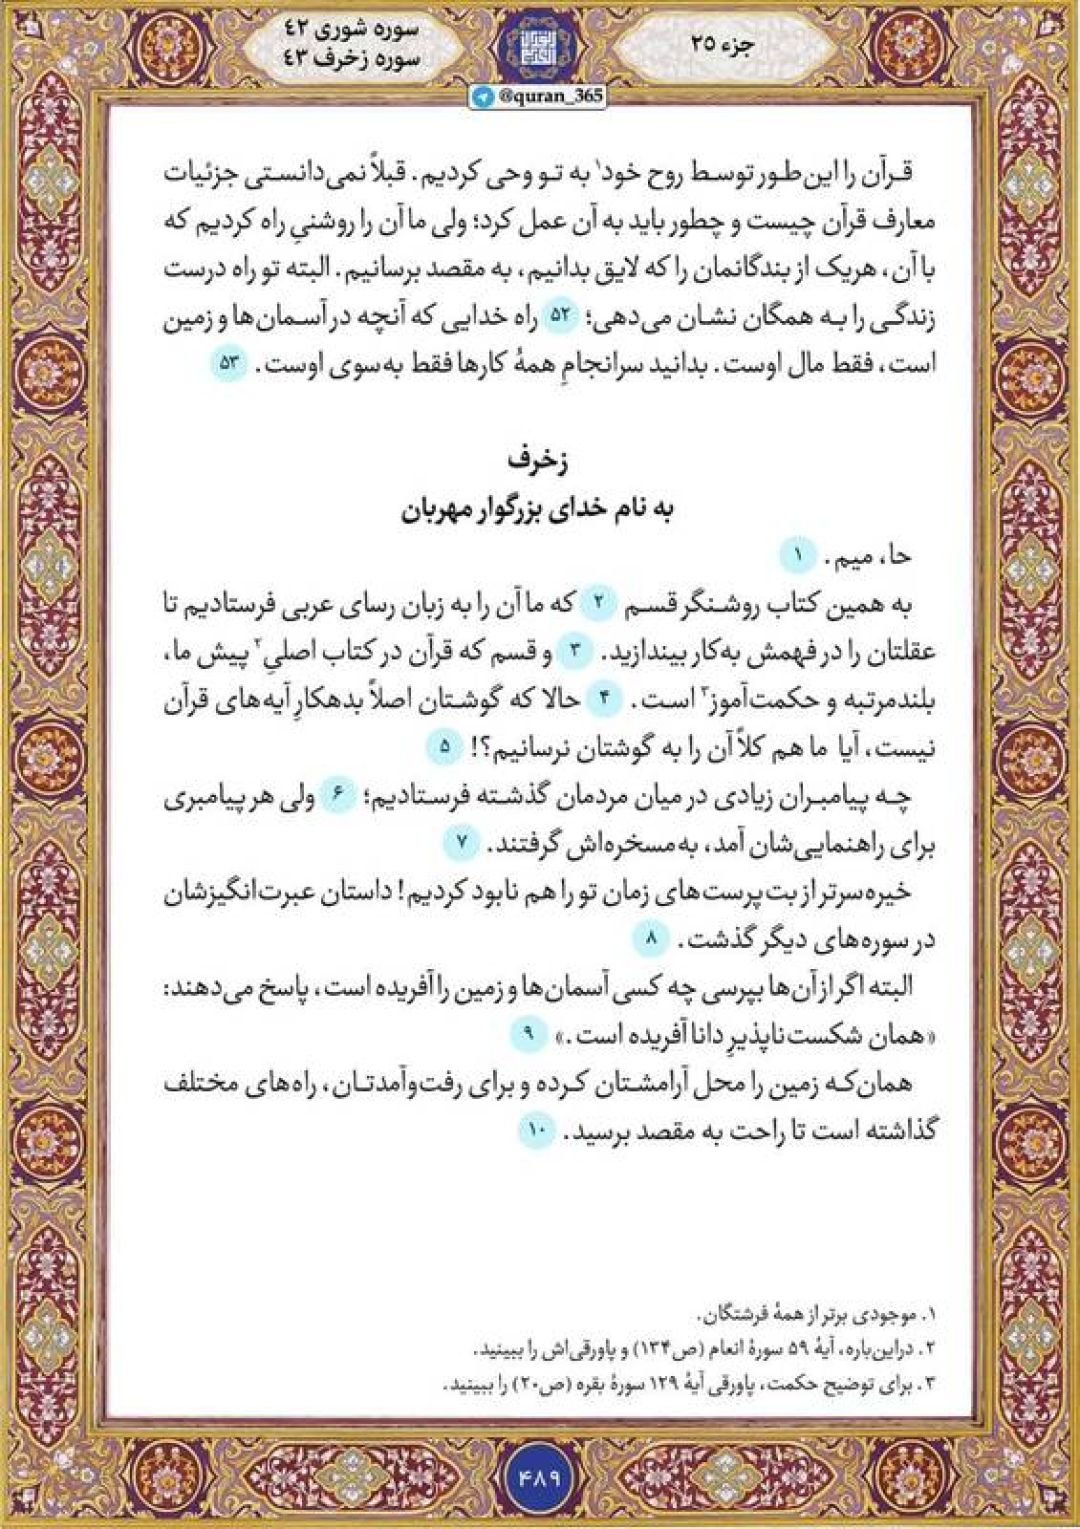 جزء ۲۵
سوره شوری ۴۲
سوره زخرف ۴۳
@quran_365
قرآن را این‌طور توسط روح خود۱ به تو وحی کردیم. قبلاً نمی‌دانستی جزئیات
معارف قرآن چیست و چطور باید به آن عمل کرد؛ ولی ما آن را روشنیِ راه کردیم که
با آن، هریک از بندگانمان را که لایق بدانیم، به مقصد برسانیم. البته تو راه درست
زندگی را به همگان نشان می‌دهی؛ ۵۲ راه خدایی که آنچه در آسمان‌ها و زمین
است، فقط مال اوست. بدانید سرانجامِ همهٔ کارها فقط به‌سوی اوست. ۵۳
زخرف
به نام خدای بزرگوار مهربان
حا، میم. ۱
به همین کتاب روشنگر قسم ۲ که ما آن را به زبان رسای عربی فرستادیم تا
عقلتان را در فهمش به‌کار بیندازید. ۳ و قسم که قرآن در کتاب اصلیِ۲ پیش ما،
بلندمرتبه و حکمت‌آموز۳ است. ۴ حالا که گوشتان اصلاً بدهکارِ آیه‌های قرآن
نیست، آیا ما هم کلاً آن را به گوشتان نرسانیم؟! ۵
چه پیامبران زیادی در میان مردمان گذشته فرستادیم؛ ۶ ولی هر پیامبری
برای راهنمایی‌شان آمد، به‌مسخره‌اش گرفتند. ۷
خیره‌سرتر از بت‌پرست‌های زمان تو را هم نابود کردیم! داستان عبرت‌انگیزشان
در سوره‌های دیگر گذشت. ۸
البته اگر از آن‌ها بپرسی چه کسی آسمان‌ها و زمین را آفریده است، پاسخ می‌دهند:
«همان شکست‌ناپذیرِ دانا آفریده است.» ۹
همان‌که زمین را محل آرامشتان کرده و برای رفت‌وآمدتان، راه‌های مختلف
گذاشته است تا راحت به مقصد برسید. ۱۰
۱. موجودی برتر از همهٔ فرشتگان.
۲. دراین‌باره، آیهٔ ۵۹ سورهٔ انعام (ص۱۳۴) و پاورقی‌اش را ببینید.
۳. برای توضیح حکمت، پاورقی آیهٔ ۱۲۹ سورهٔ بقره (ص۲۰) را ببینید.
۴۸۹